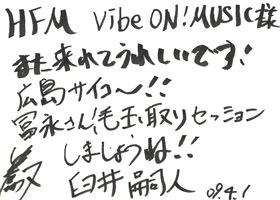 HFM Vibe ON! MUSIC様
また来れてうれしいです!
広島サイコ～!!
冨永さん!毛玉取りセッション
しましょうね!!
臼井嗣人 09.4.1